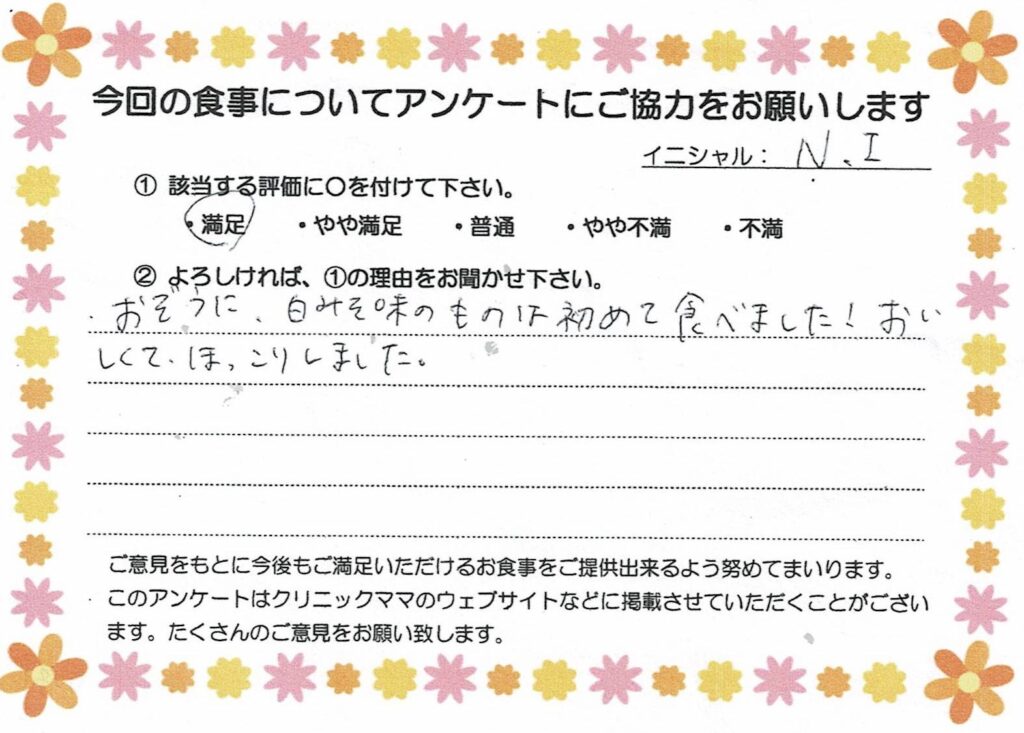 今回の食事についてアンケートにご協力をお願いします
イニシャル： N.I
① 該当する評価に〇を付けて下さい。
・満足 ・やや満足 ・普通 ・やや不満 ・不満
② よろしければ、①の理由をお聞かせ下さい。
・おぞうに、白みそ味のものは初めて食べました！おい
しくて、ほっこりしました。
ご意見をもとに今後もご満足いただけるお食事をご提供出来るよう努めてまいります。
このアンケートはクリニックママのウェブサイトなどに掲載させていただくことがござい
ます。たくさんのご意見をお願い致します。